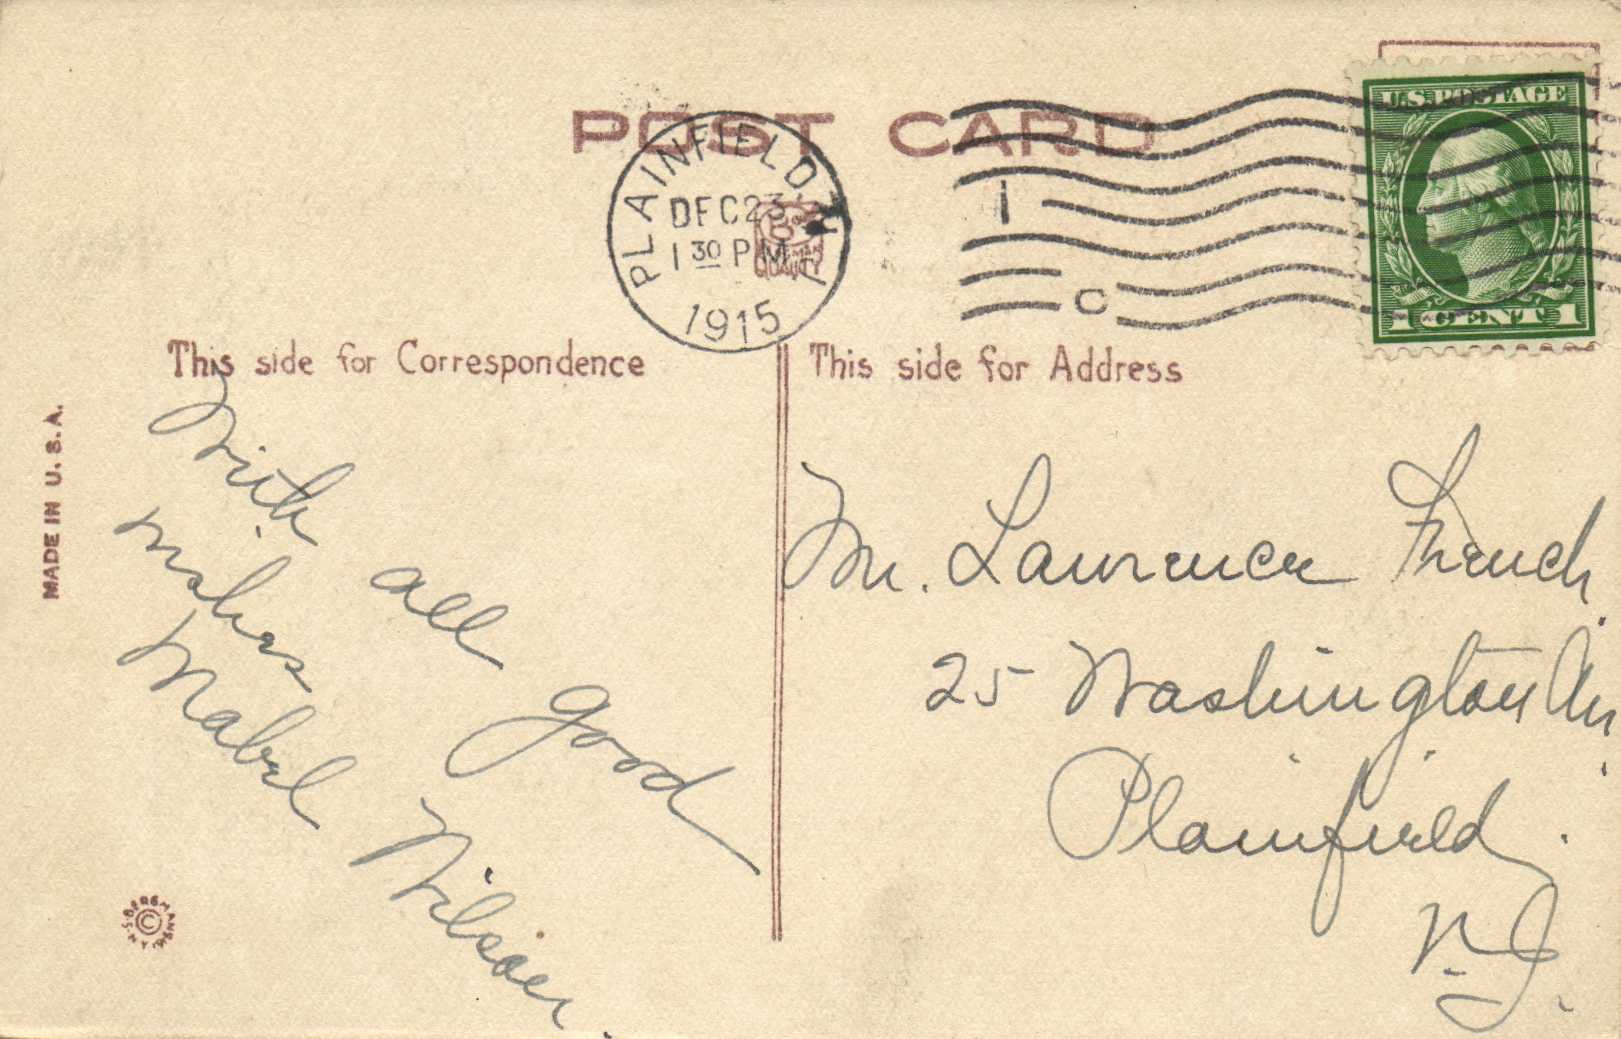 POST CARD
PLAINFIELD, N.J.
DEC 23
1 30 PM
1915
1
C
U.S. POSTAGE
1 CENT 1
QUALITY
This side for Correspondence
This side for Address
MADE IN U.S.A.
With all good
wishes
Mabel Wilson.
Mr. Lawrence French,
25 Washington Av,
Plainfield,
N.J.
S. BERGMAN N.Y. 1913
©